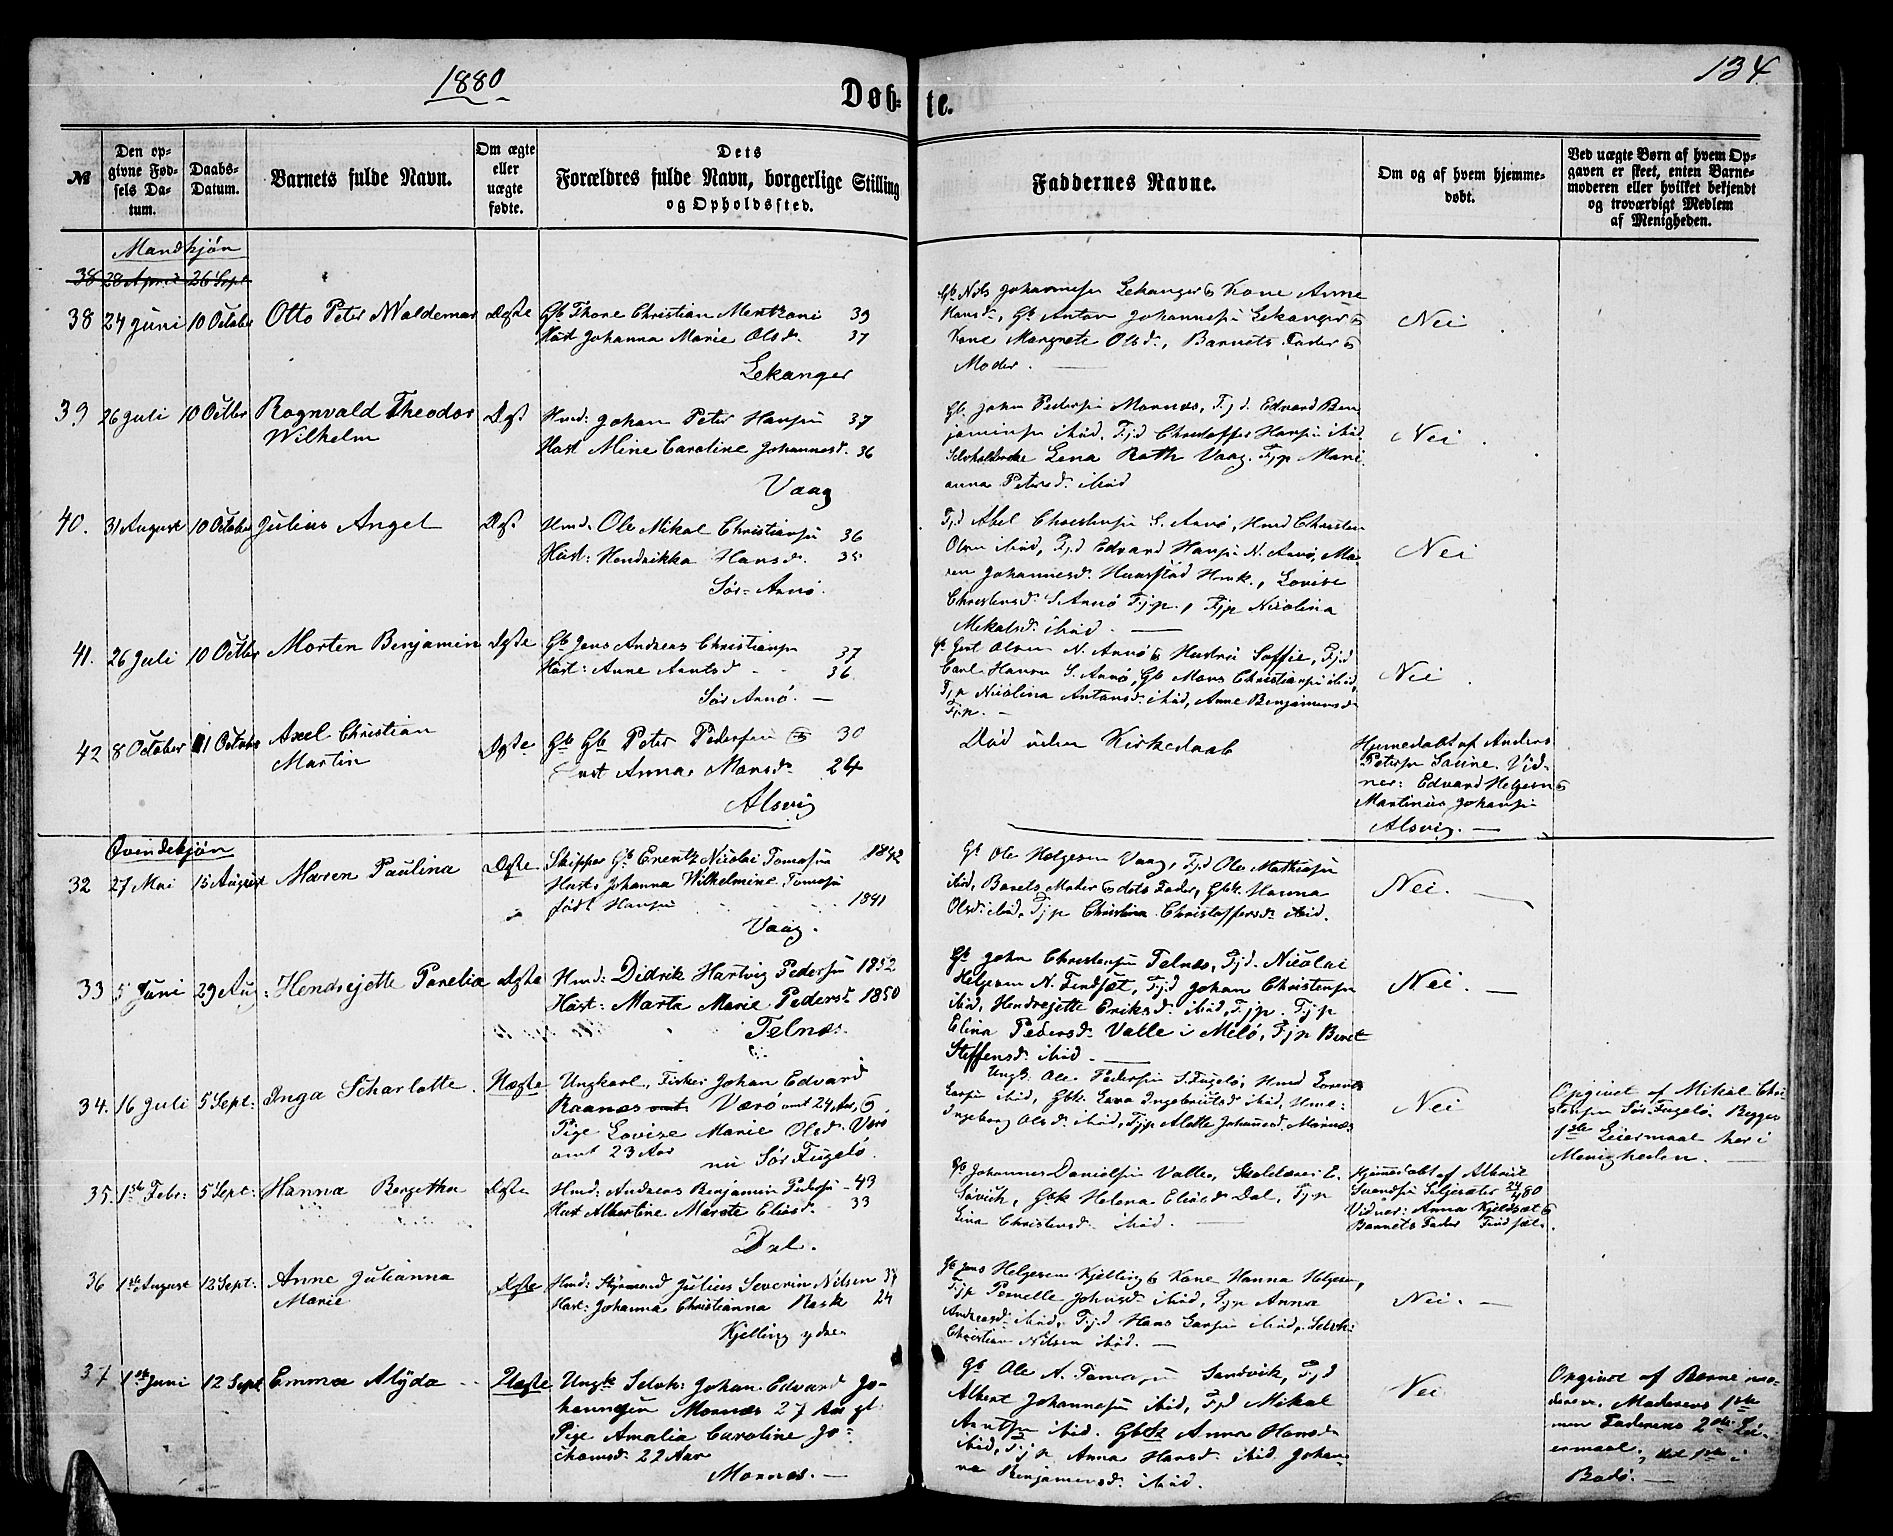 1880
134.
Døb-
te.
№
Den op-
givne Fød-
sels Da-
tum.
Daabs-
Datum.
Barnets fulde Navn.
Om ægte
eller
uægte
fødte.
Dets
Forældres fulde Navn, borgerlige Stilling
og Opholdssted.
Faddernes Navne.
Om og af hvem hjemme-
døbt.
Ved uægte Børn af hvem Op-
gaven er skeet, enten Barne-
moderen eller hvilket bekjendt
og troværdigt Medlem
af Menigheden.
Mandkjøn
38 28 April 26 Sept
38 24 Juni 10 October Otto Peter Waldemar Ægte Gb Thore Christian Mentzoni 39
Hust Johanna Marie Olsd. 37
Lekanger
Gb Nils Johannesen Lekanger & Kone Anne
Hansd., Gb Anton Johannesen Lekanger &
Kone Margrete Olsd., Barnets Fader &
Moder.
Nei
39 26 Juli 10 Octbr Rognvald Theodor Ægt Hmd: Johan Peter Hansen 37
Wilhelm
Hust Mine Caroline Johannesd. 36
Vaag
Gb. John Pedersen Mornes, Fjd. Edvard Ben-
jaminsen ibid, Fjd Christoffer Hansen ibid
Lena Rath Vaag, Fjp Mari-
anna Petersd. ibid
Nei
40. 31 August 10 October Julius Angel Ægt Hmd: Ole Mikal Christiansen 36
Hust: Hendrikka Hansd. 35
Sør-Arnø.
Fjd Axel Christensen S. Arnø, Hmd Christen
Olsen ibid, Fjd Edvard Hansen N. Arnø, Ma-
ren Johannesd. Hmk., Lovise
Christensd. S. Arnø Fjp., Fjp Nicolina
Mekalsd. ibid.
Nei
41. 26 Juli 10 Octbr Morten Benjamin Ægte Gb Jens Andreas Christiansen 37
Hust: Anne Arntsd 36
Sør Arnø.
Gb Gert Olsen N. Arnø & Hustru Soffie, Fjd
Carl Hansen S. Arnø, Gb Mons Christiansen ibid,
Fjp Nicolina Antonsd. ibid, Anne Benjaminsd
Fjp.
Nei
42 8 October 11 October Axel Christian Ægte Gb Gb Peter Pedersen & 30
Martin
Hust Anna Monsd. 24
Alsvig
Død uden Kirkedaab
Hjemedøbt af Anders
Petersen Saune. Vid-
ner: Edvard Helgesen &
Martinus Johansen
Alsvig.
Qvindekjøn
32 27 Mai 15 August Maren Paulina Ægte Skipper Gb Erentz Nicolai Tomasen 1842
Husts Johanna Wilhelmine Tomasen
født Hansen 1841
Vaag.
Gb Ole Helgesen Vaag, Fjd Ole Mathisen
ibid, Barnets Moder & dets Fader, Gbk. Hanna
Olsd. ibid, Fjp Christina Christoffersd. ibid.
Nei.
33 5 Juni 29 Aug: Hendrejette Parelia Ægte Hmd: Didrik Hartvig Pedersen 1852
Hust: Marta Marie Pedersd. 1850
Telnes
Gb John Christensen Telnes, Fjd. Nicolai
Helgesen N. Findset, Fjd Johan Christensen
ibid, Hendrejette Eriksd. ibid, Fjp. Fjp
Elina Pedersd. Valle i Melø, Fjp Beret
Steffensd. ibid.
Nei.
34. 16 Juli 5 Sept: Inga Scharlotte Uægte Ungkarl, Fisker Johan Edvard
Raanes omt Værø omt 24 Aar, &
Pige Lovise Marie Olsd. Værø
omt 23 Aar
nu Sør Fugelø.
Ungk. Ole Pedersen S. Fugelø, Hmd Lorents
Larsen ibid, Gbk. Lava Ingebrigtsd ibid, Hmk:
Ingeborg Olsd. ibid, Fjp Alette Johansd. Mornes
Nei
Opgivet af Mikal Chri-
stensen Sør Fugelø. Begges
1ste Leiermaal her i
Menigheden.
35. 1ste Febr: 5 Sept: Hanna Bergetha Ægte Hmd: Andreas Benjamin Pedersen 43
Hust Albertine Marete Eliasd. 33
Dal.
Gb Johannes Danielsen Valle, Skolelærer E.
Sørvik, Gbk Helena Eliasd. Dal, Fjp
Lina Christensd. ibid.
Hjemmedøbt af Albrigt
Svendsen Seljesæter 24/4 80
Vidner: Anna Kjeldsæt &
Barnets Fader
36 1ste August 12 Sept: Anne Julianna Ægte Hmd: Styrmand Julius Severin Nilsen 37
Marie
Hust: Johanna Christianna Rask 24
Kjelling ydre
Gb Jens Helgesen Kjelling & Kone Hanna Helgesen,
Fjp Pernelle Johnsd. ibid, Fjp Anna
Andreasd. ibid, Fjd Hans Larsen ibid, Selvk:
Christian Nilsen ibid.
Nei.
37 1ste Juni 12 Sept Emma Alyda Uægte Ungk Selvk: Johan Edvard Jo-
hannesen Mornes 27 Aar gl.
Pige Amalia Caroline Jo-
chomsd. 22 Aar
Mornes.
Gb Ole A. Tomasen Sandvik, Fjd
Albert Johannesen ibid, Fjd Mikal
Arntsen ibid. Gbk Anna Hansd.
ibid, Fjp Anna Hansd. ibid, Johan-
na Benjaminsd. ibid.
Nei
Opgivet af Barnemo-
deren. Moderens 1ste
men Faderens 2det Lei-
ermaal, det 1ste i
Bodø.